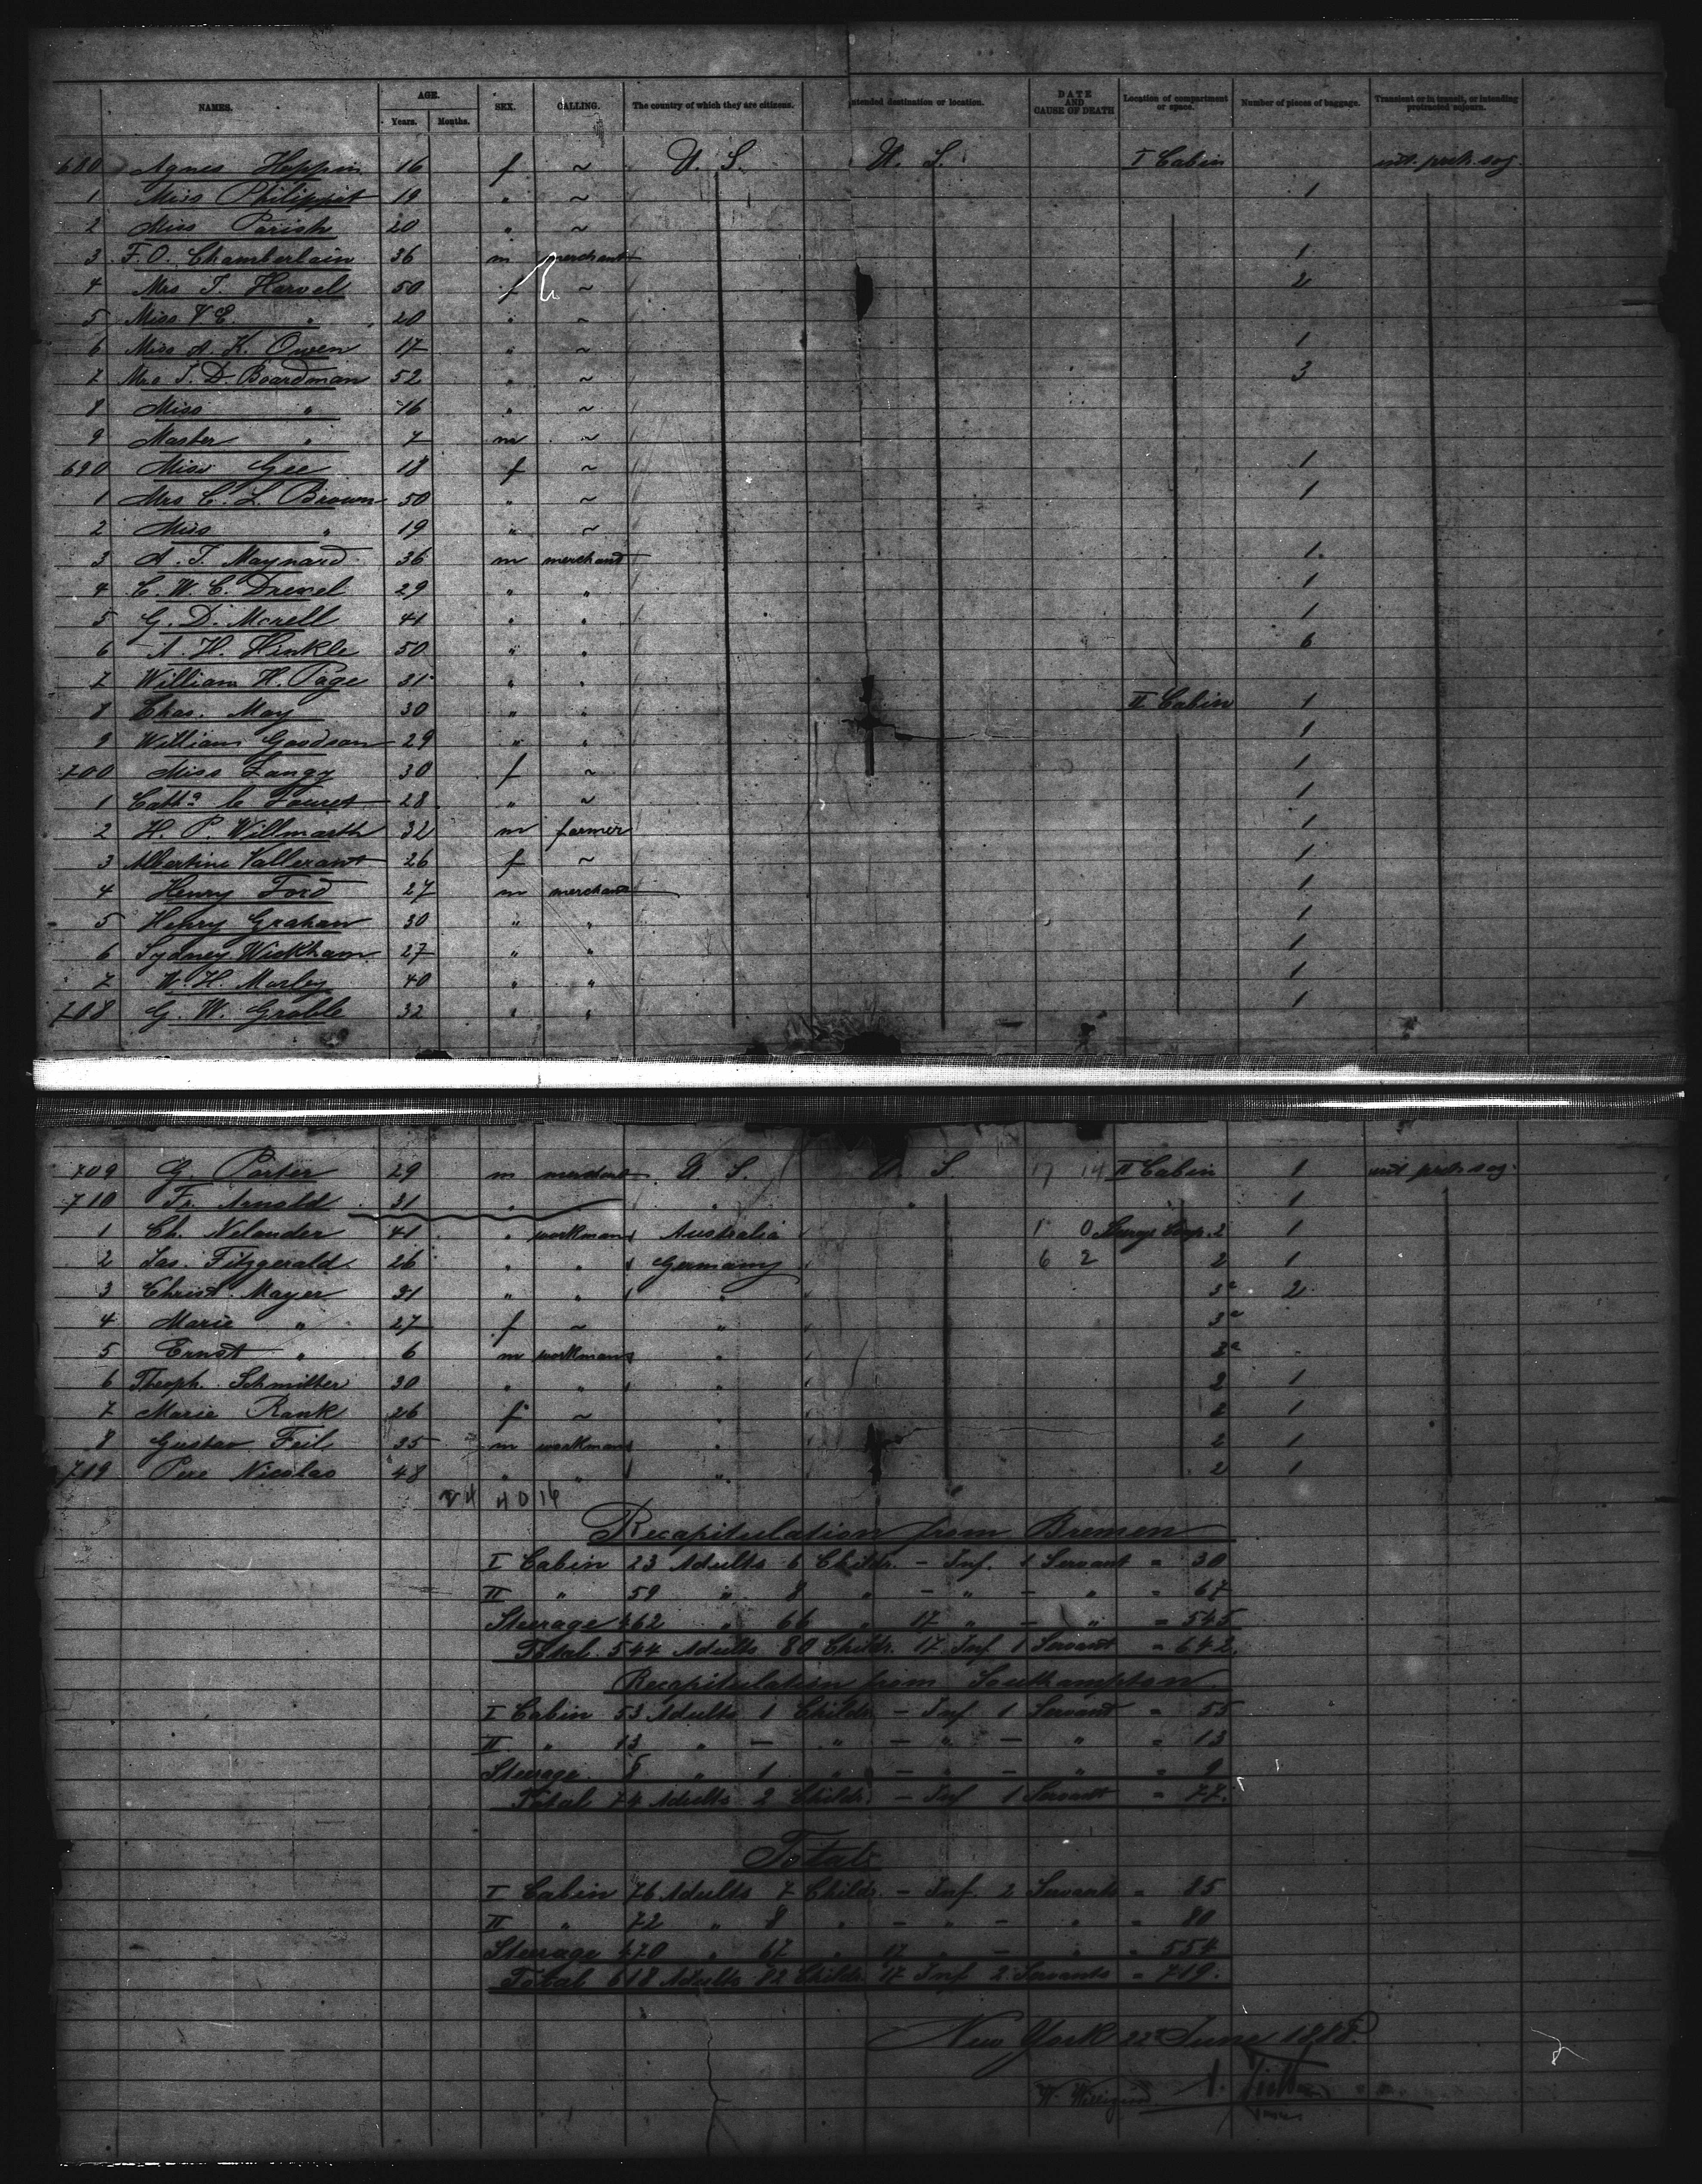 NAMES. AGE. Years. Months. SEX. CALLING. The country of which they are citizens. ntended destination or location. DATE AND CAUSE OF DEATH Location of compartment or space. Number of pieces of baggage. Transient or in transit, or intending protracted sojourn.
680 Agnes Heppin 16 f ~ U. S. U. S. I Cabin
1 Miss Philippit 19 " ~ 1
2 Miss Parish 20 " ~
3 F. O. Chamberlain 36 m merchant 1
4 Mrs T. Harvel 50 f ~ 2
5 Miss V. E. " 20 " ~
6 Miss A. K. Owen 17 " ~ 1
7 Mrs T. D. Boardman 52 " ~ 3
8 Miss " 16 " ~
9 Master " 7 m ~
690 Miss Gee 18 f ~ 1
1 Mrs C. L. Brown 50 " ~ 1
2 Miss " 19 " ~
3 A. T. Maynard 36 m merchant 1
4 C. W. C. Drexel 29 " " 1
5 G. D. Morell 41 " " 1
6 A. H. Hinkle 50 " " 6
7 William H. Page 31 " "
8 Chas. May 30 " " II Cabin 1
9 William Goodson 29 " " 1
700 Miss Langy 30 f ~ 1
1 Cath.a le Fouret 28 " ~ 1
2 H. P. Willmarth 32 m farmer 1
3 Albertine Vallerant 26 f ~ 1
4 Henry Ford 27 m merchant 1
5 Henry Graham 30 " " 1
6 Sydney Wickham 27 " " 1
7 W. H. Morley 40 " " 1
708 G. W. Groble 32 " " 1
709 G. Porter 29 m merchant U. S. U. S. 17 14 II Cabin 1
710 Fr. Arnold 31 " " " 1
1 Ch. Nelander 41 " workman Australia 1 0 2 1
2 Jas. Fitzgerald 26 " " Germany 6 2 2 1
3 Christ. Mayer 31 " " " 3a 2
4 Marie " 27 f ~ " 3a
5 Ernst " 6 m workman " 3a -
6 Theoph. Schmitter 30 " " " 2 1
7 Marie Rank 26 f ~ " 2 1
8 Gustav Feil 35 m workman " 2 1
719 Pere Nicolas 48 " " " 2 1
24 40 16
Recapitulation from Bremen
I Cabin 23 Adults 6 Childr. - Inf. 1 Servant = 30
II " 59 " 8 " - " - " = 67
Steerage 462 " 66 " 17 " - " = 545
Total 544 Adults 80 Childr. 17 Inf 1 Servant = 642.
Recapitulation from Southampton
I Cabin 53 Adults 1 Childr - Inf 1 Servant = 55
II " 13 " - " - " - " = 13
Steerage 8 " 1 " - " - " = 9
Total 74 Adults 2 Childr. - Inf 1 Servant = 77.
Total:
I Cabin 76 Adults 7 Childr. - Inf. 2 Servants = 85
II " 72 " 8 " - " - " = 80
Steerage 470 " 67 " 17 " - " = 554
Total 618 Adults 82 Childr 17 Inf 2 Servants = 719.
New York 22 June 1888